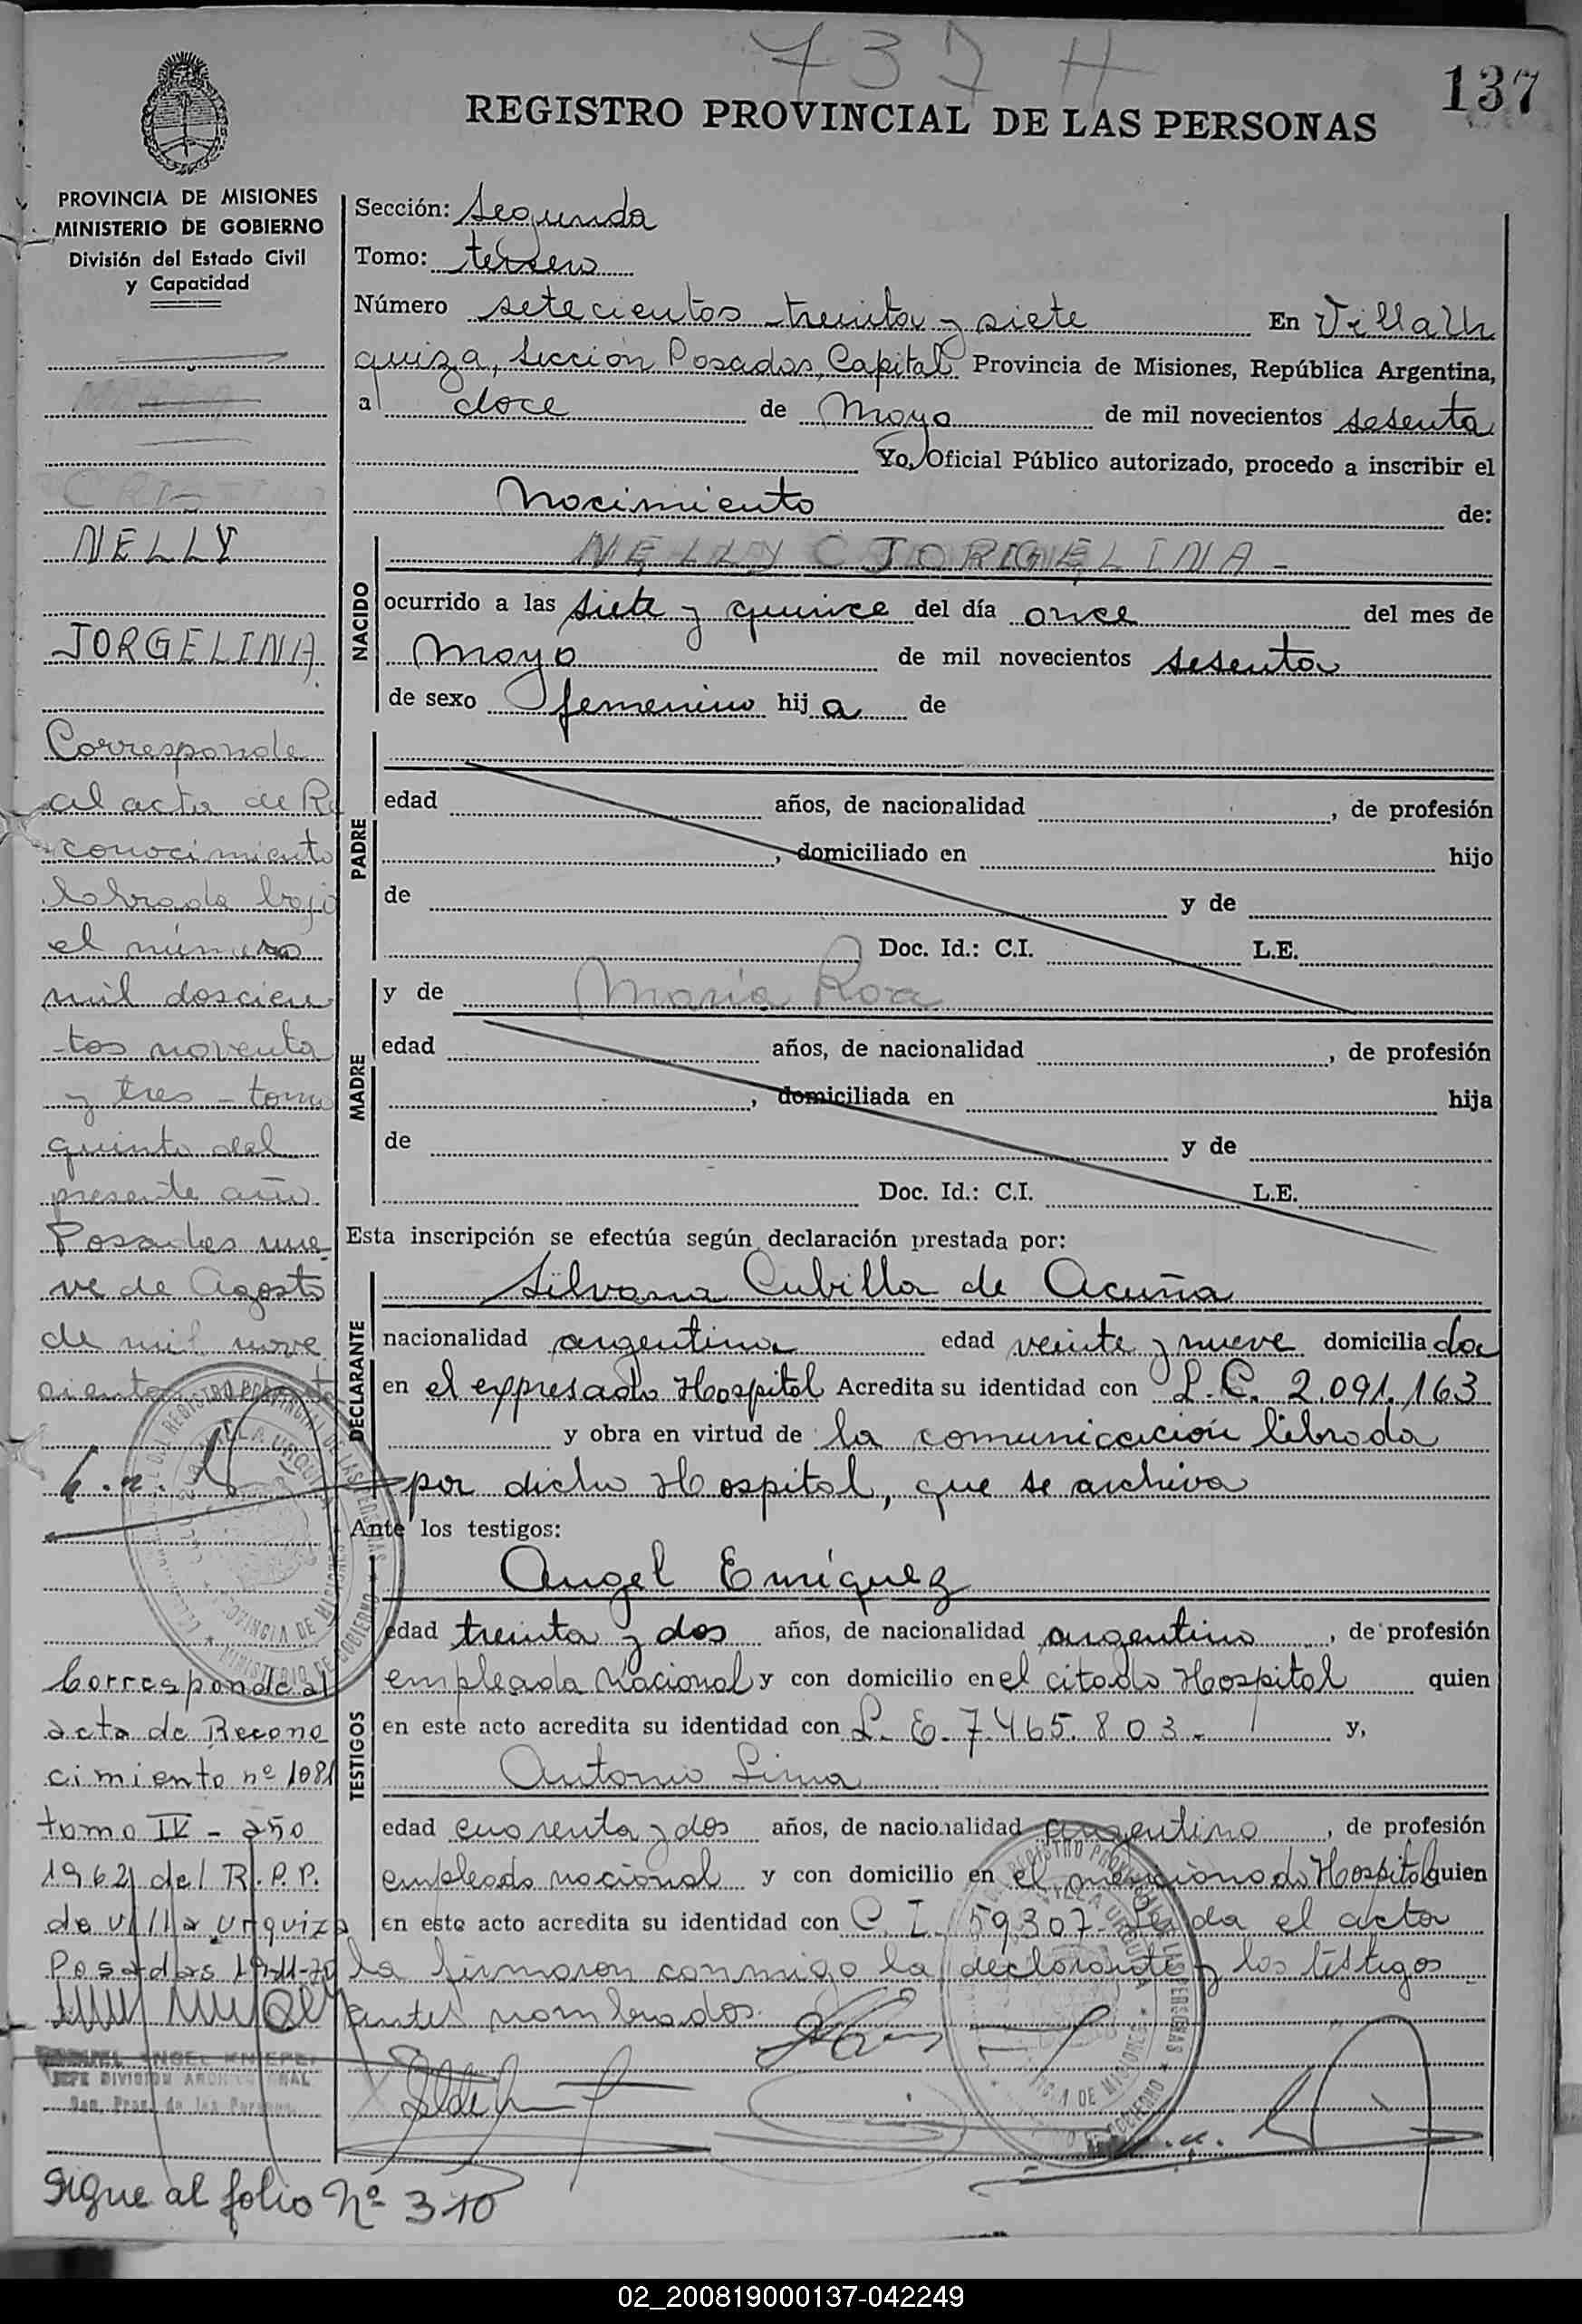 737 H
137
REGISTRO PROVINCIAL DE LAS PERSONAS
PROVINCIA DE MISIONES
MINISTERIO DE GOBIERNO
División del Estado Civil
y Capacidad
NELLY
JORGELINA
Corresponde
al acta de Re
conocimiento
labrada bajo
el número
mil doscien
tos noventa
y tres - tomo
quinto del
presente año
Posadas nue
ve de Agosto
de mil nove
cientos
Corresponde al
acta de Recono
cimiento nº 1081
tomo IV - año
1962 del R.P.P.
de Villa Urquiza
Posadas 19-11-70
JEFE DIVISION
Sección: Segunda
Tomo: tercero
Número setecientos treinta y siete En Villa Ur
quiza, Sección Posadas, Capital Provincia de Misiones, República Argentina,
a doce de Mayo de mil novecientos sesenta
Yo, Oficial Público autorizado, procedo a inscribir el
Nacimiento de:
NACIDO
NELLY JORGELINA -
ocurrido a las siete y quince del día once del mes de
Mayo de mil novecientos sesenta
de sexo femenino hija de
PADRE
edad años, de nacionalidad , de profesión
, domiciliado en hijo
de y de
Doc. Id.: C.I. L.E.
MADRE
y de María Roa
edad años, de nacionalidad , de profesión
, domiciliada en hija
de y de
Doc. Id.: C.I. L.E.
Esta inscripción se efectúa según declaración prestada por:
DECLARANTE
Silvana Cubilla de Acuña
nacionalidad argentina edad veinte y nueve domiciliada
en el expresado Hospital Acredita su identidad con L.C. 2.091.163
y obra en virtud de la comunicación librada
por dicho Hospital, que se archiva
Ante los testigos:
TESTIGOS
Angel Enriquez
edad treinta y dos años, de nacionalidad argentino, de profesión
empleado Nacional y con domicilio en el citado Hospital quien
en este acto acredita su identidad con L.E. 7.465.803.- y,
Antonio Lima
edad cuarenta y dos años, de nacionalidad argentino, de profesión
empleado nacional y con domicilio en el mencionado Hospital quien
en este acto acredita su identidad con C.I. 59307- Leida el acta
la firmaron conmigo la declarante y los testigos
antes nombrados.
Sigue al folio Nº 310
02_200819000137-042249